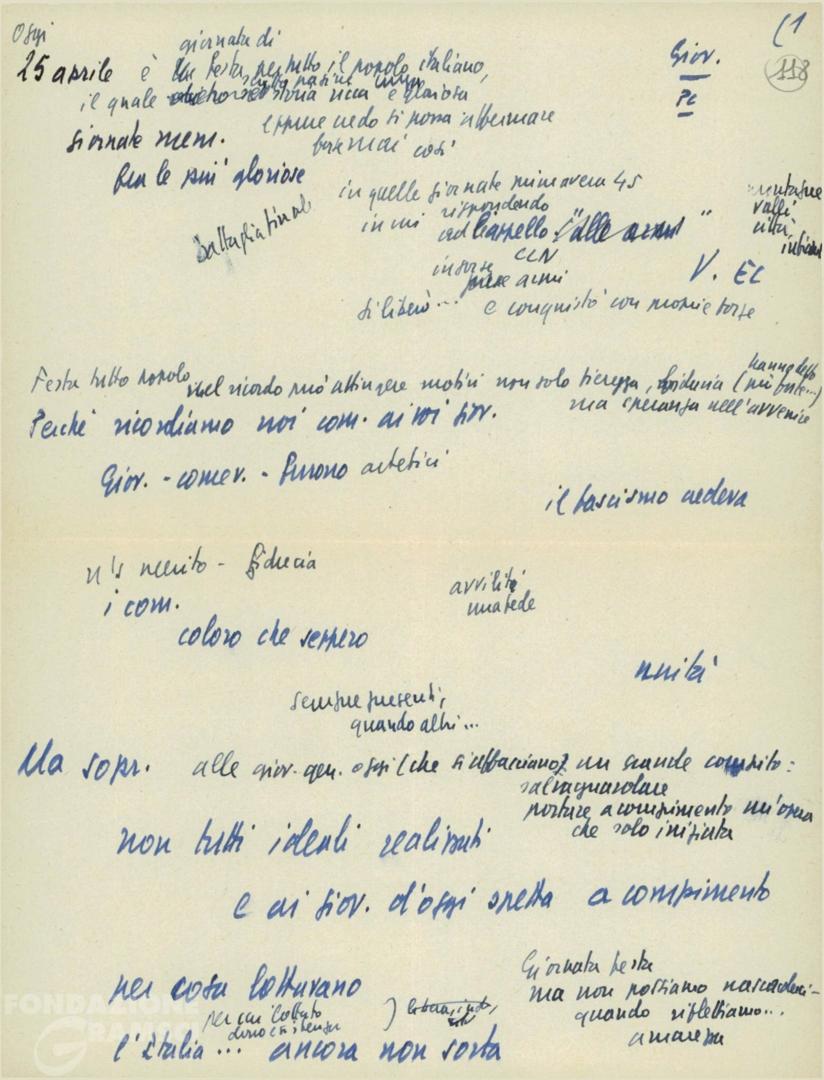 Oggi
(1
118
giornata di
25 aprile è festa per tutto il popolo italiano,
Giov.
PC
il quale storia ricca e gloriosa
eppure credo si possa affermare
giornate mem.
ormai così
fra le più gloriose
in quelle giornate primavera 45
montagne
valli
città
battaglia finale
in cui rispondendo
ad appello "alle armi"
CLN
insorse
prese armi
V. EC
si liberò... e conquistò con proprie forze
Festa tutto popolo nel ricordo può attingere motivi non solo fierezza, fiducia (
ma speranza nell'avvenire
Perché ricordiamo noi com. ai voi giov.
Giov. - comev. - furono artefici
il fascismo credeva
n/s merito - fiducia
avvilito
una fede
i com.
coloro che seppero
unità
sempre presenti,
quando altri...
Ma sopr. alle giov. gen. oggi (che si affacciano) un grande compito:
salvaguardare
portare a compimento un'opera
che solo iniziata
non tutti ideali realizzati
e ai giov. d'oggi spetta a compimento
Giornata festa
per cosa lottavano
ma non possiamo nasconderci
quando riflettiamo...
amarezza
per cui lottato
l'Italia... ancora non sorta
FONDAZIONE
GRAMSCI